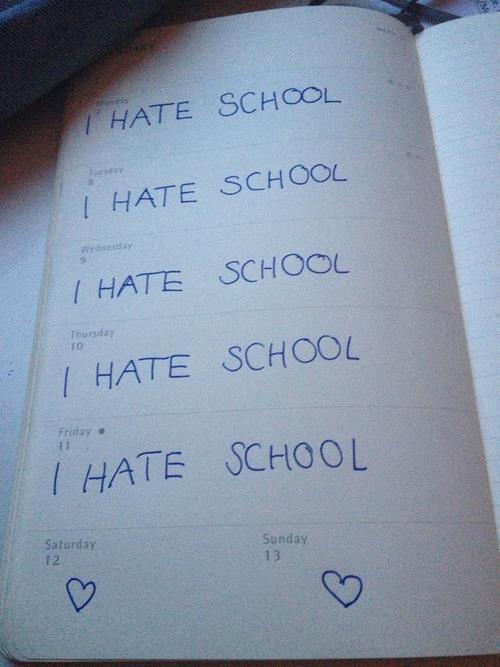 Monday
I HATE SCHOOL
Tuesday
8
I HATE SCHOOL
Wednesday
9
I HATE SCHOOL
Thursday
10
I HATE SCHOOL
Friday
11
I HATE SCHOOL
Saturday Sunday
12 13